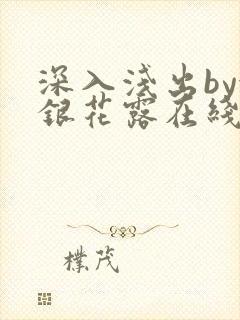 深入浅出by
銀花露在綫
樸茂